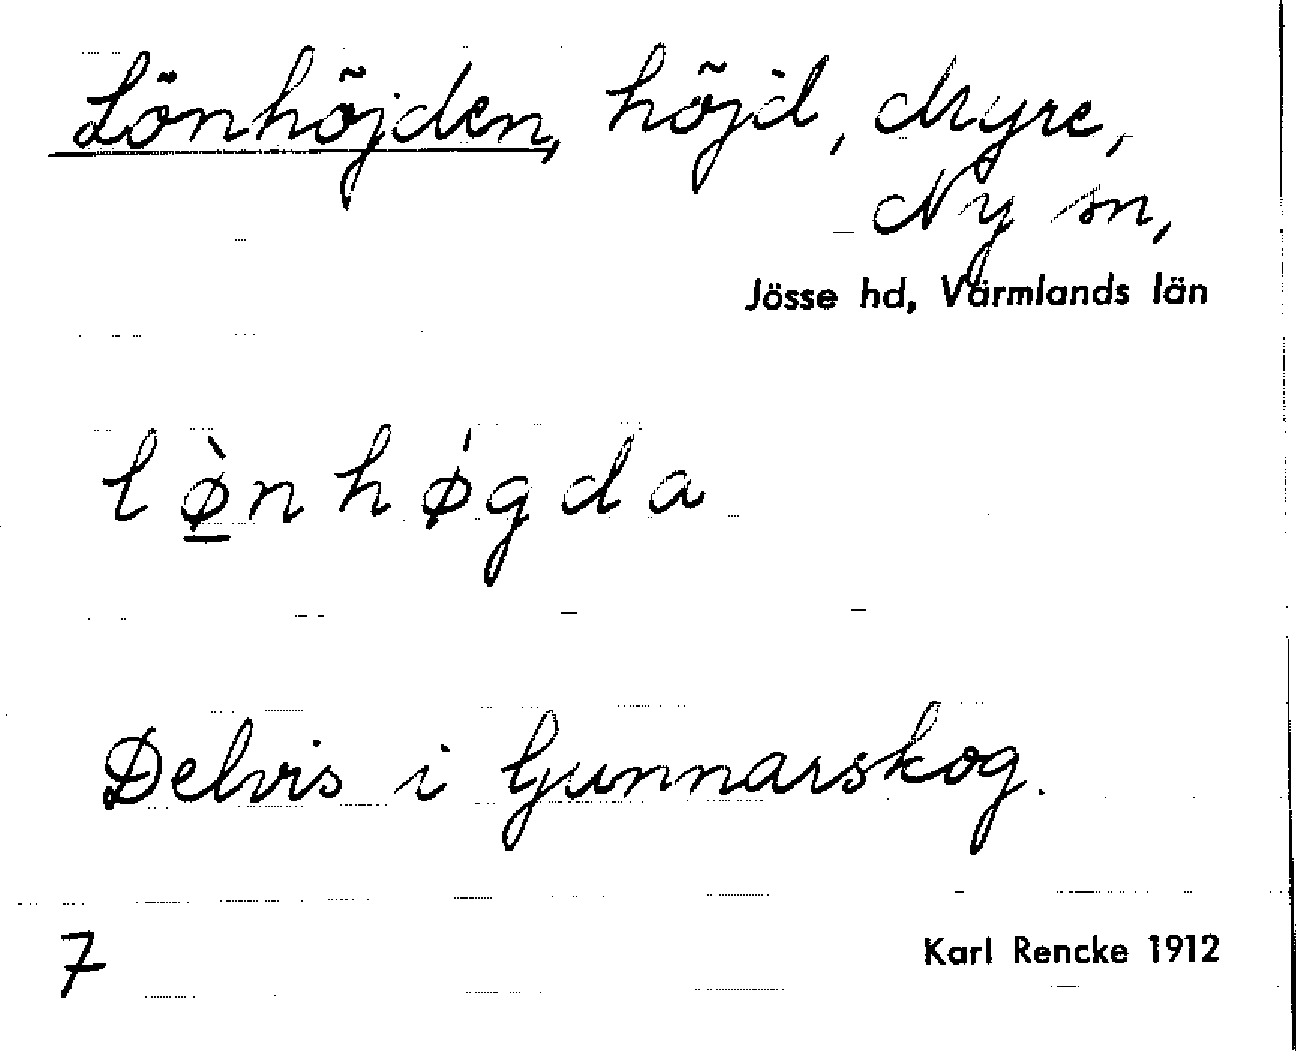 Lönhöjden, höjd, Myre,
Ny sn,
Jösse hd, Värmlands län
lø̲̀nhǿgda
Delvis i Gunnarskog.
7
Karl Rencke 1912